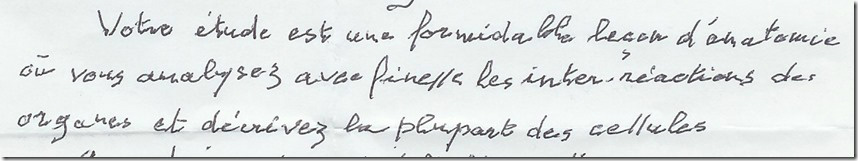 Votre étude est une formidable leçon d'anatomie
où vous analysez avec finesse les inter-réactions des
organes et décrivez la plupart des cellules